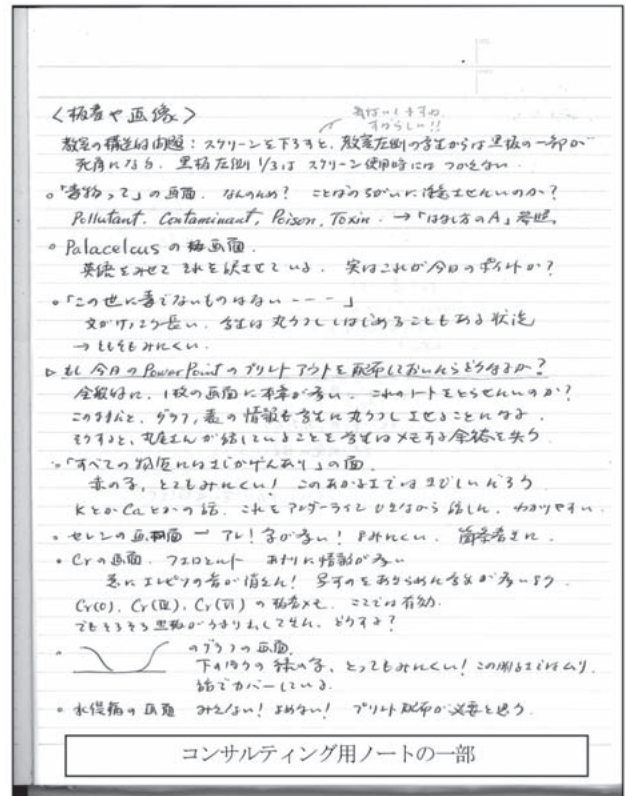 <板書や画像>
気はいくすね
すばらしい!!
教室の構造的問題：スクリーンを下ろすと、教室左側の学生からは黒板の一部が
死角になる．黒板左側1/3は スクリーン使用時には つかえない．
○「毒物って」の画面． なんのため？ ことばのちがいに注意させたいのか？
Pollutant. Contaminant, Poison, Toxin. →「はなし方のA」参照．
○ Palacelcus の 画面．
英語をみせて それを訳させている． 実はこれが今日のポイントか？
○「この世に毒でないものはない---」
文がけっこう長い． 学生は 丸うつしはじめることもある 状況
→ そもそもみにくい．
▷ もし 今日の PowerPoint の プリントアウトを 配布しておいたらどうなるか？
全般的に、1枚の画面に 文章が多い． これのノートをとらせたいのか？
このままだと、グラフ，表の情報も学生に丸うつしさせることになる．
そうすると、 さんが話していることを 学生はメモする余裕を失う．
○「すべての物質にはさじかげんあり」の面．
赤の字、とてもみにくい！ このあかるさではきびしいだろう
KとかCaとかの話、これをアンダーラインひきながら 話した． わかりやすい．
○ セレンの画面 ー アレ！ 字が多い！ よみにくい． 箇条書きに．
○ Crの画面． フェロとルト あまりに情報が多い
急に エレピツの音が消えた！ 写すのをあきらめた学生が多いよう
Cr(0), Cr(Ⅲ), Cr(Ⅵ) の 板書メモ． ここでは有効．
でもそろそろ黒板がうまりました． どうする？
○ のグラフの画面．
下のほうの 緑の字、とってもみにくい！この明るさではムリ．
話でカバーしている．
○ 水俣病の画面 みえない！ よめない！ プリント配布が必要と思う．
コンサルティング用ノートの一部